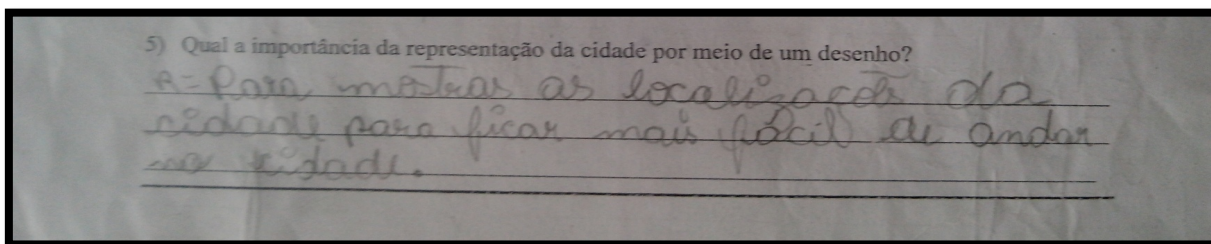 5) Qual a importância da representação da cidade por meio de um desenho?
R= Para mostrar as localizações da
cidade para ficar mais fácil de andar
na cidade.